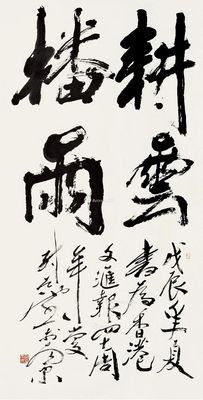 耕雲
播雨
戊辰夏
書為香港
文滙報四十周
年